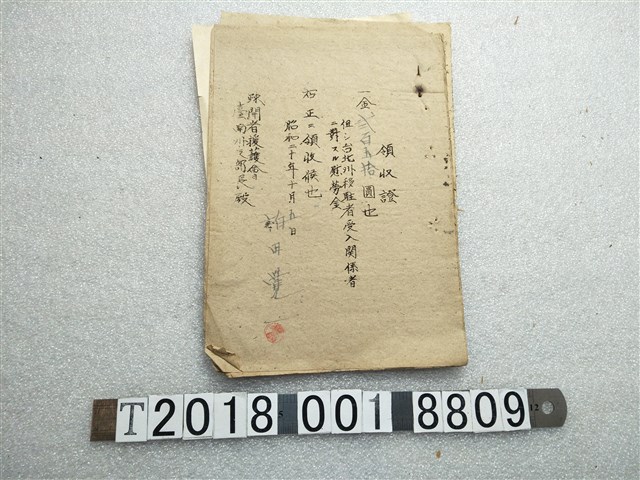 領收證
一金弐百五拾圓也
但シ台北州移駐者受入関係者
ニ対スル慰労金
右正ニ領收候也
昭和二十年十月五日
田
疎開者援護会
臺南州支部長殿
T2018 001 8809
12